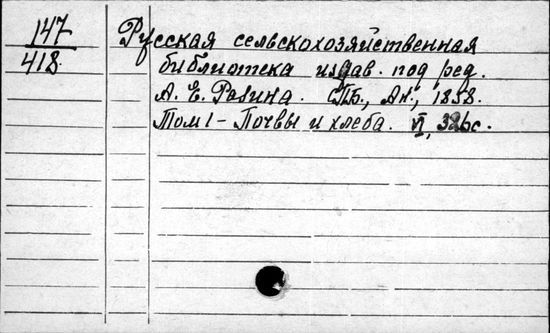 147
418
Русская сельскохозяйственная
библиотека издав. под ред.
А. Е. Разина. СПБ., Ан., 1858.
Том I - Почвы и хлеба. VI, 326 с.